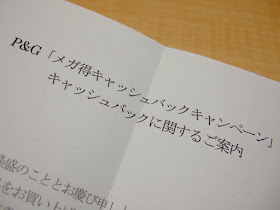 P&G「メガ得キャッシュバックキャンペーン」
キャッシュバックに関するご案内
隆盛のこととお慶び申し
をお買い上げ